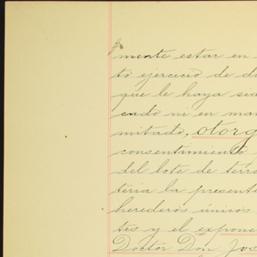 mente estar en
to ejercicio de
que le haya sid
ni en man
mitado, otorg
consentimiento
del lote de terre
teria la presente
herederos únicos
tes y el expone
Doctor Don Jos